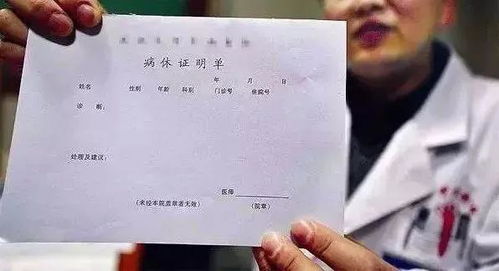 病休证明单
年 月 日
姓名 性别 年龄 科别 门诊号 住院号
诊断:
处理及建议:
医师
(未经本院盖章者无效) (院章)